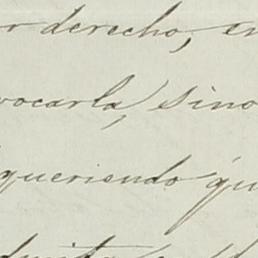 r derecho, en
vocarla, sino
queriendo qu